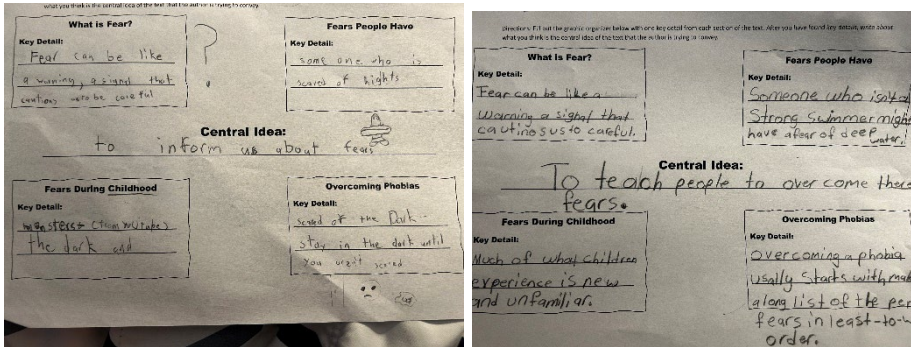 what you think is the central idea of the text that the author is trying to convey.
What is Fear?
Key Detail:
Fear can be like
a warning, a signal that
cautions us to be careful
?
Fears People Have
Key Detail:
some one who is
scared of hights
Central Idea:
to inform us about fears
Fears During Childhood
Key Detail:
monsters (from YouTube)
the dark and
Overcoming Phobias
Key Detail:
scared of the Dark -
stay in the dark until
you aren't scared
Directions: Fill out the graphic organizer below with one key detail from each section of the text. After you have found key details, write about
what you think is the central idea of the text that the author is trying to convey.
What is Fear?
Key Detail:
Fear can be like a
warning a signal that
cautinos us to careful.
Fears People Have
Key Detail:
Someone who isn't a
Strong Swimmer might
have a fear of deep
water.
Central Idea:
To teach people to over come there
fears.
Fears During Childhood
Key Detail:
Much of what children
experience is new
and unfamiliar.
Overcoming Phobias
Key Detail:
overcoming a phobia
usally starts with
a long list of the
fears in least-to-
order.